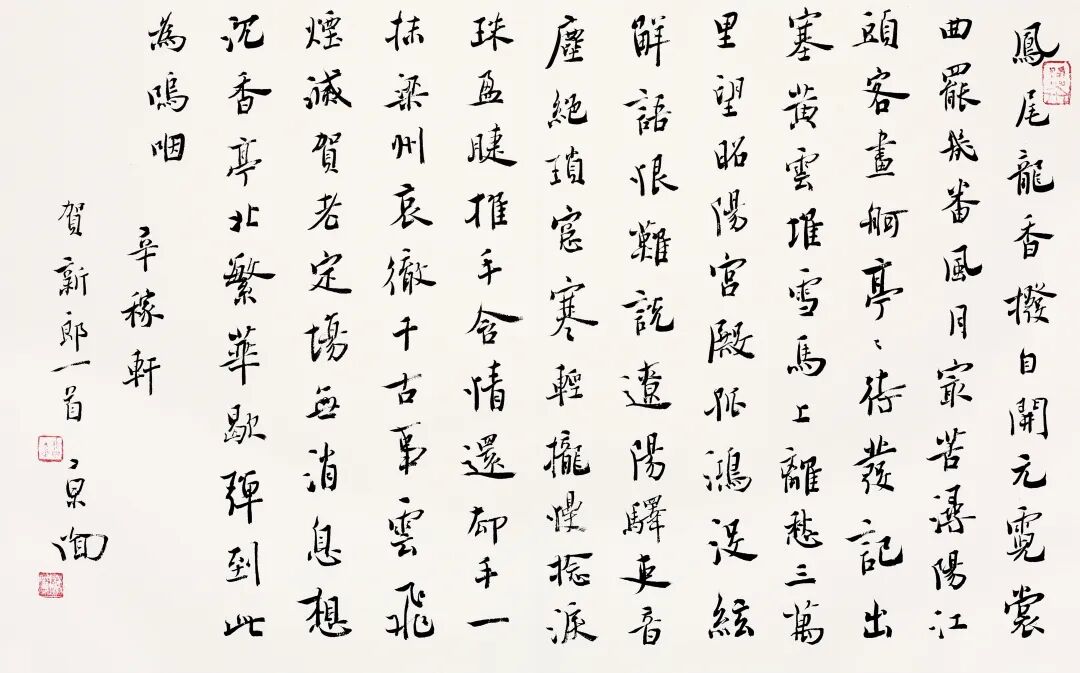 鳳尾龍香撥自開元霓裳
曲罷幾番風月最苦潯陽江
頭客畫舸亭〻待發記出
塞黃雲堆雪馬上離愁三萬
里望昭陽宮殿孤鴻沒絃
解語恨難說遼陽驛吏音
塵絕瑣窓寒輕攏慢捻淚
珠盈睫推手含情還却手一
抹梁州哀徹千古事雲飛
煙滅賀老定場無消息想
沉香亭北繁華歇彈到此
為嗚咽
辛稼軒
賀新郎一首